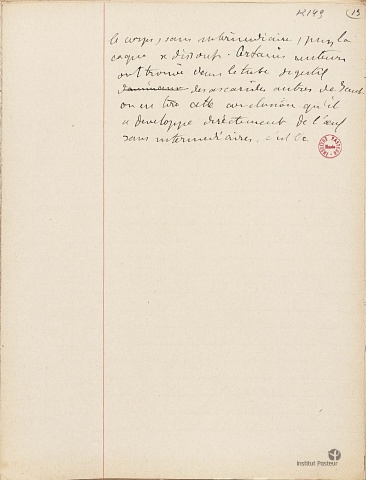 12149 13
le corps, sans intermédiaire, puis la
coque se dissout. Certains auteurs
ont trouvé dans le tube digestif
des ascarides autres de
on en tire cette conclusion qu'il
se développe directement de l'œuf
sans intermédiaires, c'est le
INSTITUT PASTEUR
Musée
Institut Pasteur